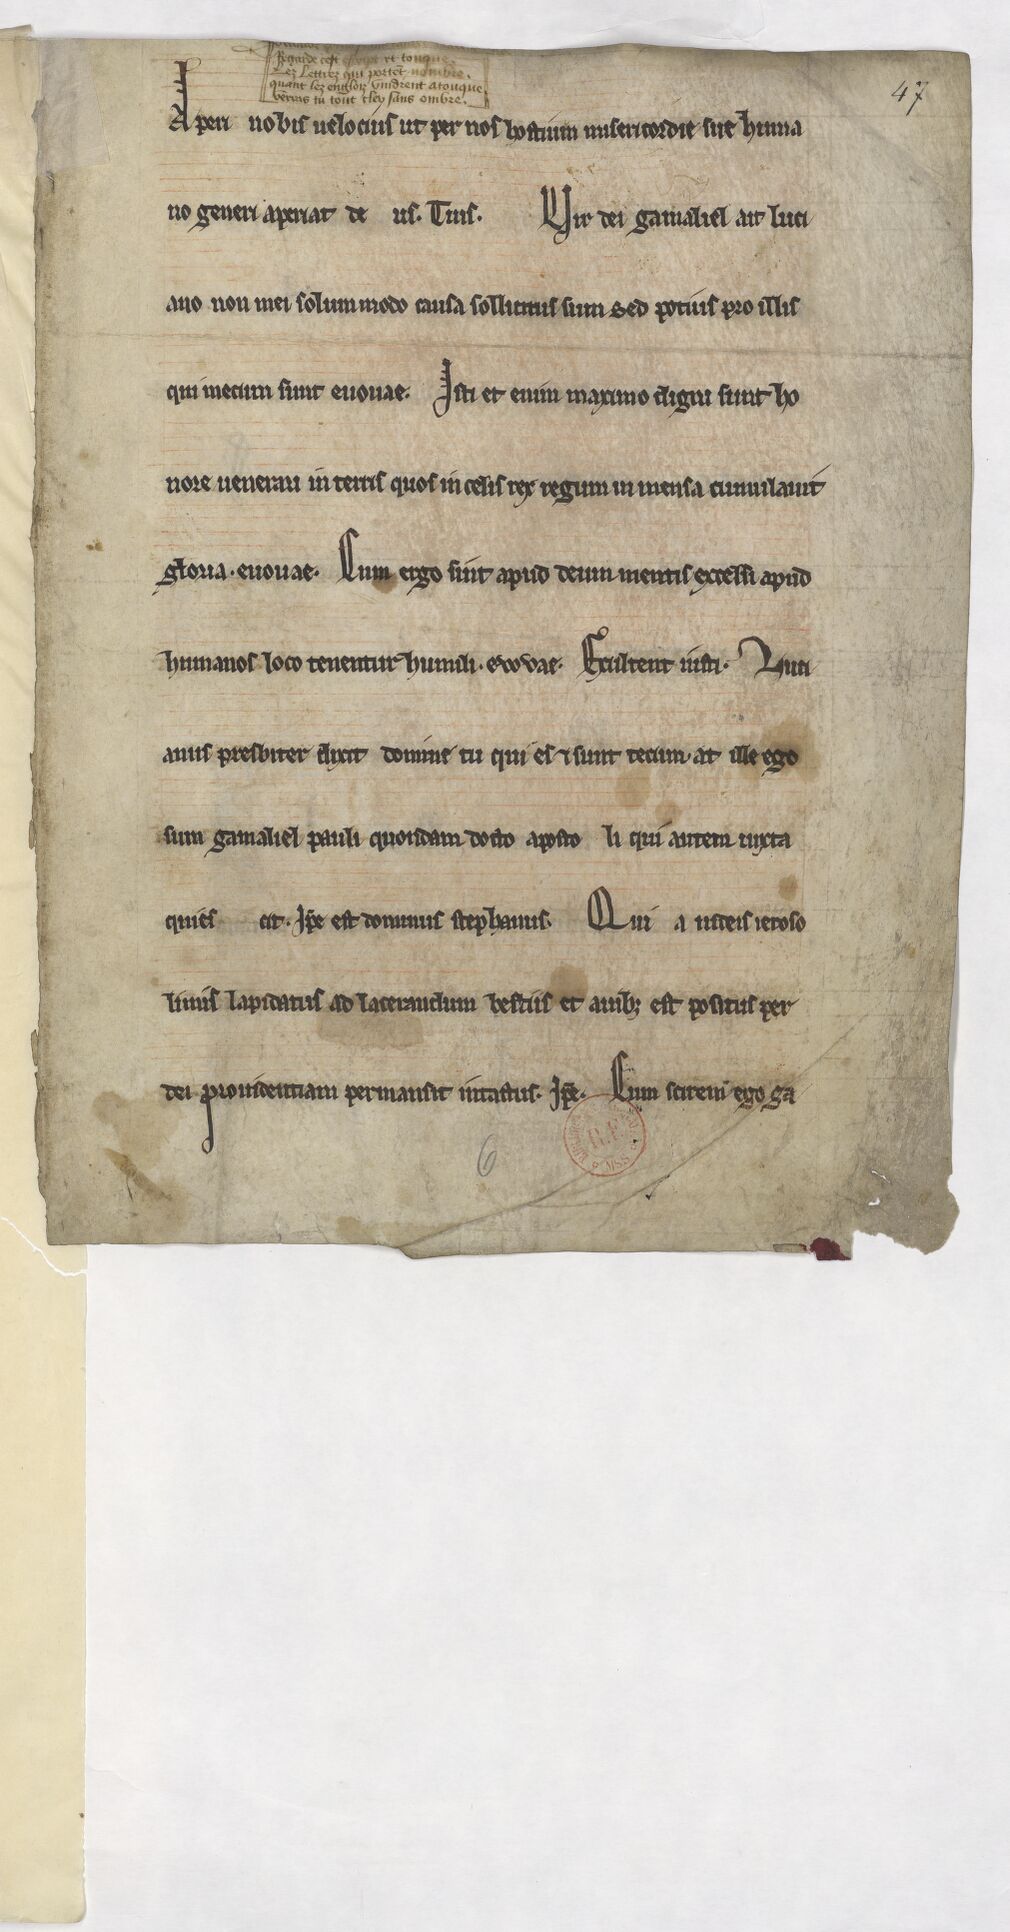 Regarde cest escript et touque
Lez Lettrez qui portent nombre.
quant lez engloiz vindrent a touque
verras tu tout cler sans ombre.
47
Aperi nobis uelocius ut per nos hostium misericordie sue huma
no generi aperiat de us. Tuis. Vir dei gamaliel ait luci
ano non mei solummodo causa sollicitus sum sed potius pro illis
qui mecum sunt euouae. Isti et enim maximo digni sunt ho
nore uenerari in terris quos in celis rex regum in mensa cumulauit
gloria. euouae. Cum ergo sint apud deum mentis excelsi apud
humanos loco tenentur humili. euouae. Exultent iusti. Luci
anus presbiter dixit domine tu qui es & sunt tecum at ille ego
sum gamaliel pauli quondam docto aposto li qui autem iuxta
quies cit. Ipse est dominus stephanus. Qui a iudeis ieroso
limis lapidatus ad lacerandum bestiis et auibꝫ est positus per
dei prouidentiam permansit intactus. Ipse. Cum scirem ego ga
6
R.F.
MSS